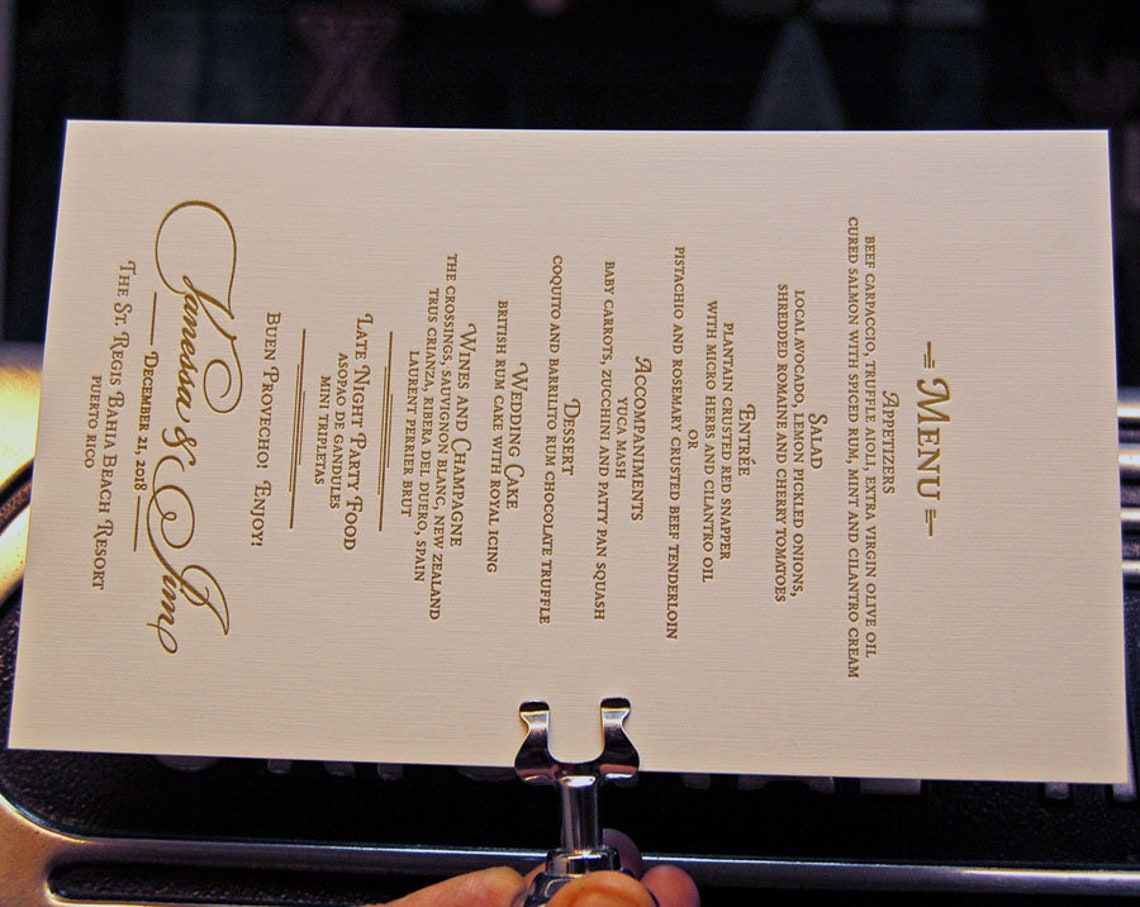 Menu
Appetizers
beef carpaccio, truffle aioli, extra virgin olive oil
cured salmon with spiced rum, mint and cilantro cream
Salad
local avocado, lemon pickled onions,
shredded romaine and cherry tomatoes
Entrée
plantain crusted red snapper
with micro herbs and cilantro oil
or
pistachio and rosemary crusted beef tenderloin
Accompaniments
yuca mash
baby carrots, zucchini and patty pan squash
Dessert
coquito and barrilito rum chocolate truffle
Wedding Cake
british rum cake with royal icing
Wines and Champagne
the crossings, sauvignon blanc, new zealand
trus crianza, ribera del duero, spain
laurent perrier brut
Late Night Party Food
asopao de gandules
mini tripletas
Buen Provecho! Enjoy!
Vanessa & Jim
December 21, 2018
The St. Regis Bahia Beach Resort
puerto rico